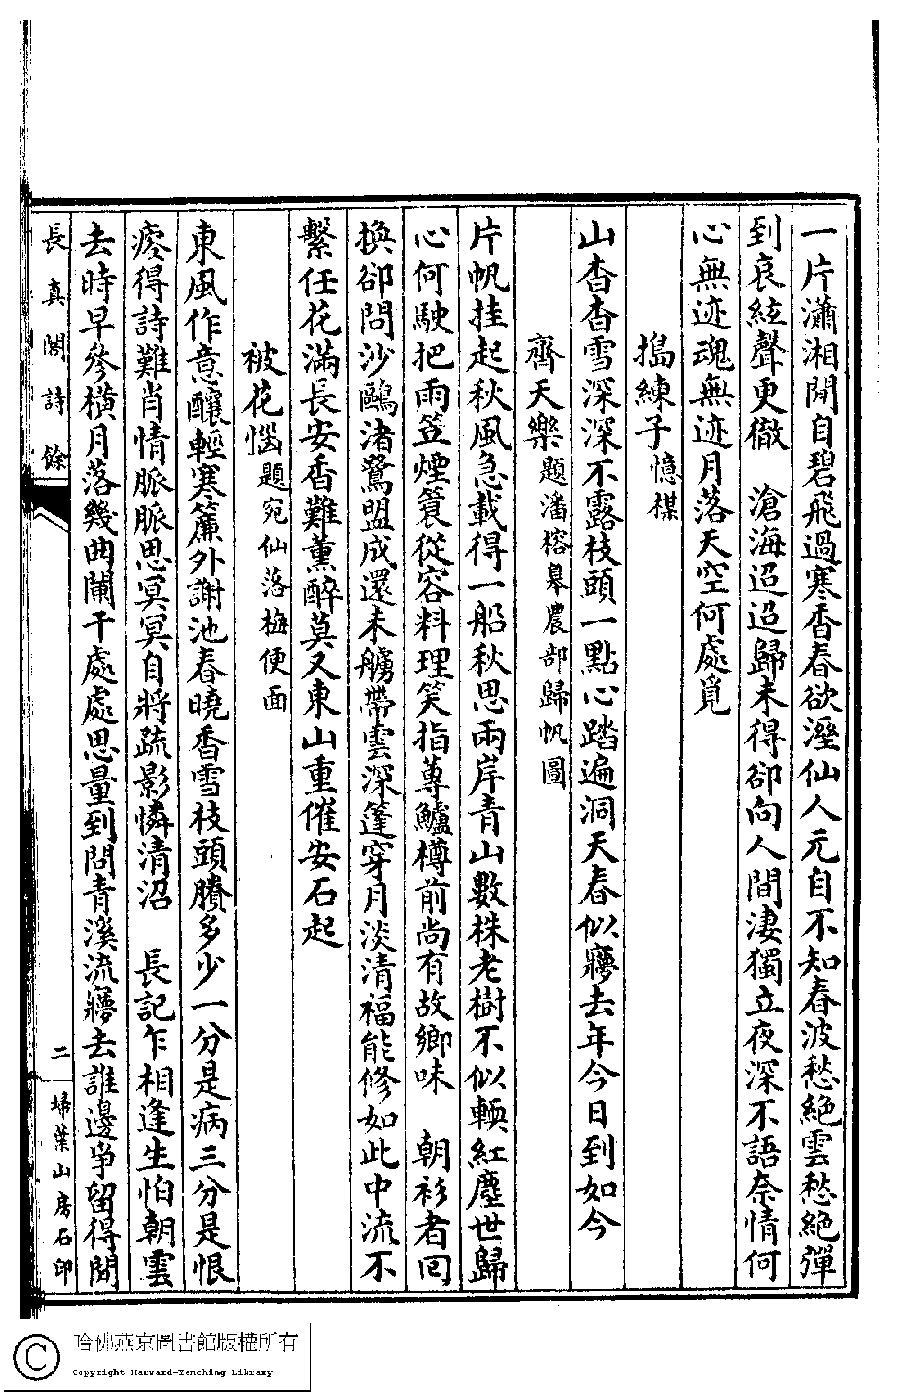 一片瀟湘閒自碧飛過寒香春欲溼仙人元自不知春波愁絶雲愁絶彈
到哀絃聲更徹　滄海迢迢歸未得卻向人間淒獨立夜深不語奈情何
心無迹魂無迹月落天空何處覓
搗練子憶楳
山杳杳雪深深不露枝頭一點心踏遍洞天春似㝱去年今日到如今
齊天樂題潘榕皋農部歸帆圖
片帆挂起秋風急載得一船秋思兩岸青山數株老樹不似輭紅塵世歸
心何駛把雨笠煙簑從容料理笑指蓴鱸樽前尚有故鄉味　朝衫者回
換卻問沙鷗渚鷺盟成還未艣帶雲深篷穿月淡清福能修如此中流不
繫任花滿長安香難薰醉莫又東山重催安石起
被花惱題宛仙落梅便面
東風作意釀輕寒簾外謝池春曉香雪枝頭賸多少一分是病三分是恨
瘦得詩難肖情脈脈思冥冥自將疏影憐清沼　長記乍相逢生怕朝雲
去時早參橫月落幾曲闌干處處思量到問青溪流㝱去誰邊爭留得閒
長真閣詩餘
二
埽葉山房石印
哈佛燕京圖書館版權所有
Copyright Harvard-Yenching Library